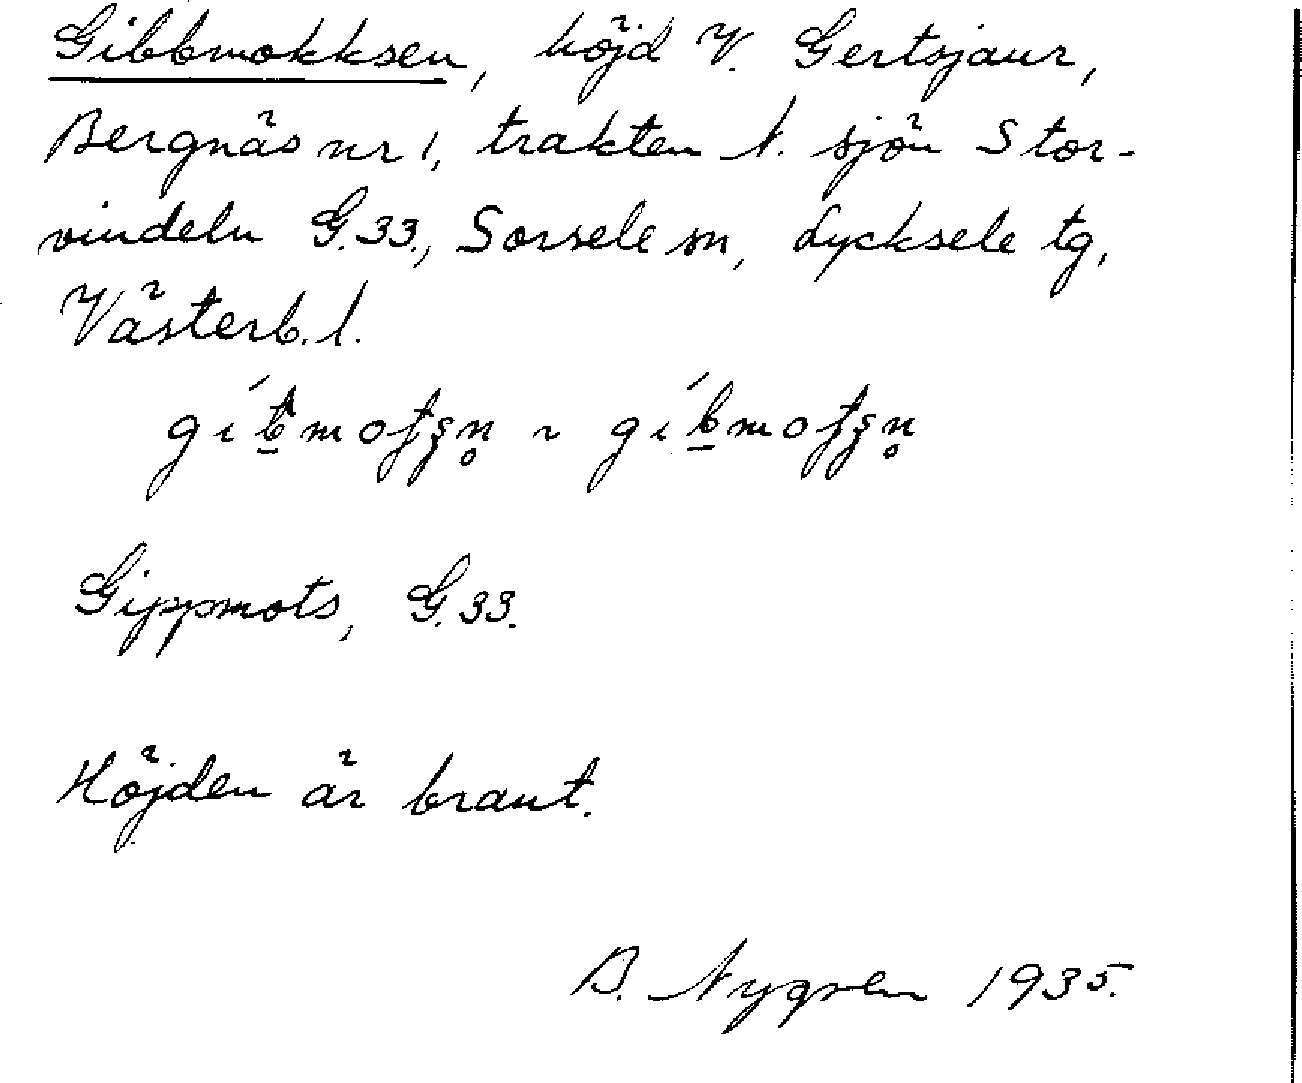 Gibbmokksen, höjd V. Gertsjaur,
Bergnäs nr 1, trakten N. sjön Stor-
vindeln G.33., Sorsele sn, Lycksele tg,
Västerb. l.
Gippmots, G.33.
Höjden är brant.
B. Nygren 1935.